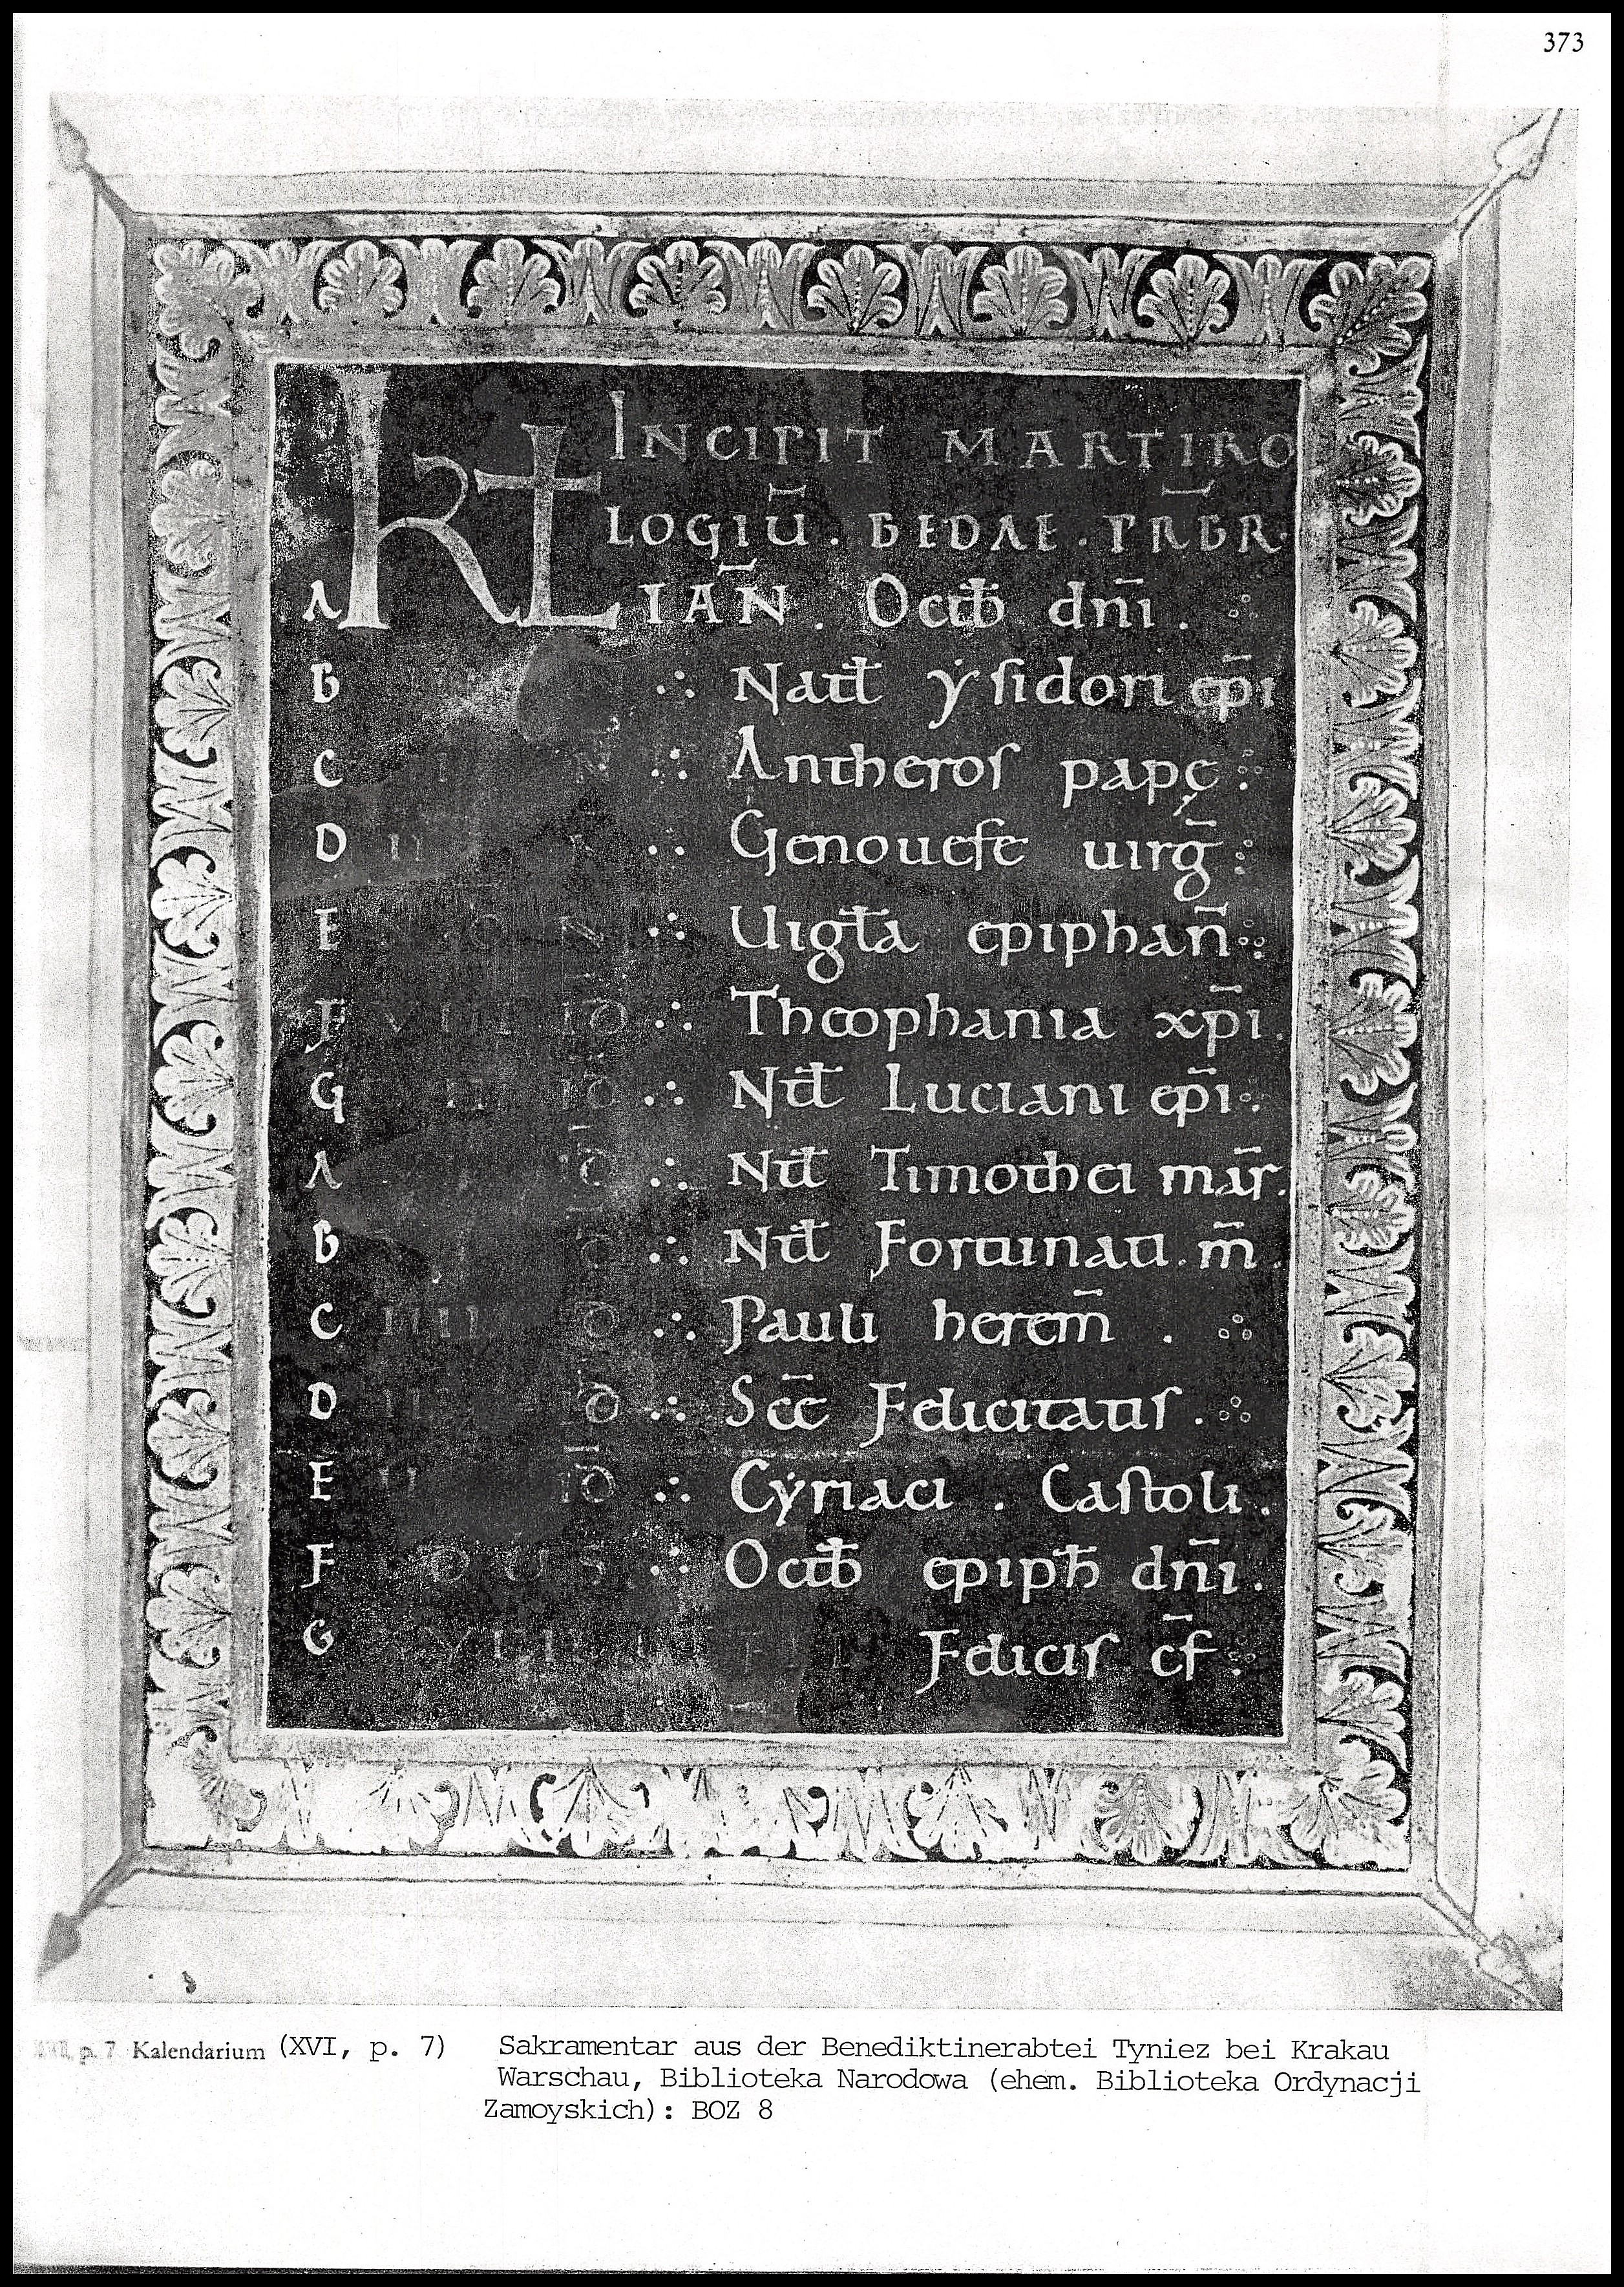 373
INCIPIT MARTIRO
LOGIU̅ . BEDAE . PR̅BR.
A KL IAN̅ . Octb̅ dn̅i .
B ∴ Natł ẏsidori ep̅i
C N ∴ Antheros papę
D II ∴ Genouefe uirg̅
E NON ∴ Uigła epiphan̅
F VIII ID ∴ Theophania xp̅i.
G ID ∴ Ntł Luciani ep̅i.
A ID̅ ∴ Ntł Timothei mar̅.
B D̅ ∴ Ntł Fortunati . m̅ .
C IIII D̅ ∴ Pauli herem̅ .
D III D̅ ∴ Sc̅e Felicitatis .
E II ID̅ ∴ Cẏriaci . Castoli .
F IDUS ∴ Octb̅ epiph̅ dn̅i .
G XVIIII Felicis cf̅
p. 7 Kalendarium (XVI, p. 7) Sakramentar aus der Benediktinerabtei Tyniez bei Krakau
Warschau, Biblioteka Narodowa (ehem. Biblioteka Ordynacji
Zamoyskich): BOZ 8